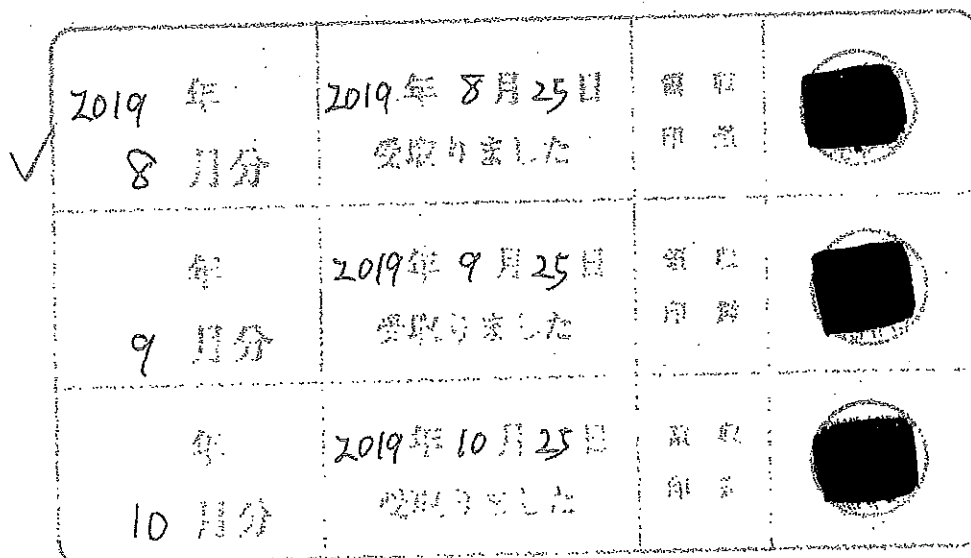 2019 年
8 月分
2019 年 8 月 25 日
受取りました
領収
印
年
9 月分
2019 年 9 月 25 日
受取りました
領収
印
年
10 月分
2019 年 10 月 25 日
受取りました
領収
印